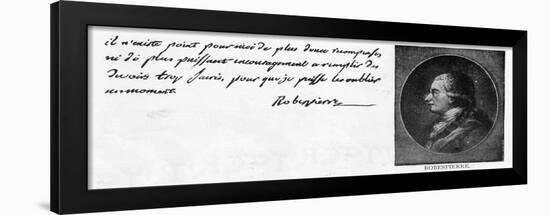 il n'existe point pour moi de plus douce recompense
ni de plus puissant encouragement a remplir des
devoirs trop sacrés, pour que je puisse les oublier
un moment.
Robespierre
ROBESPIERRE.